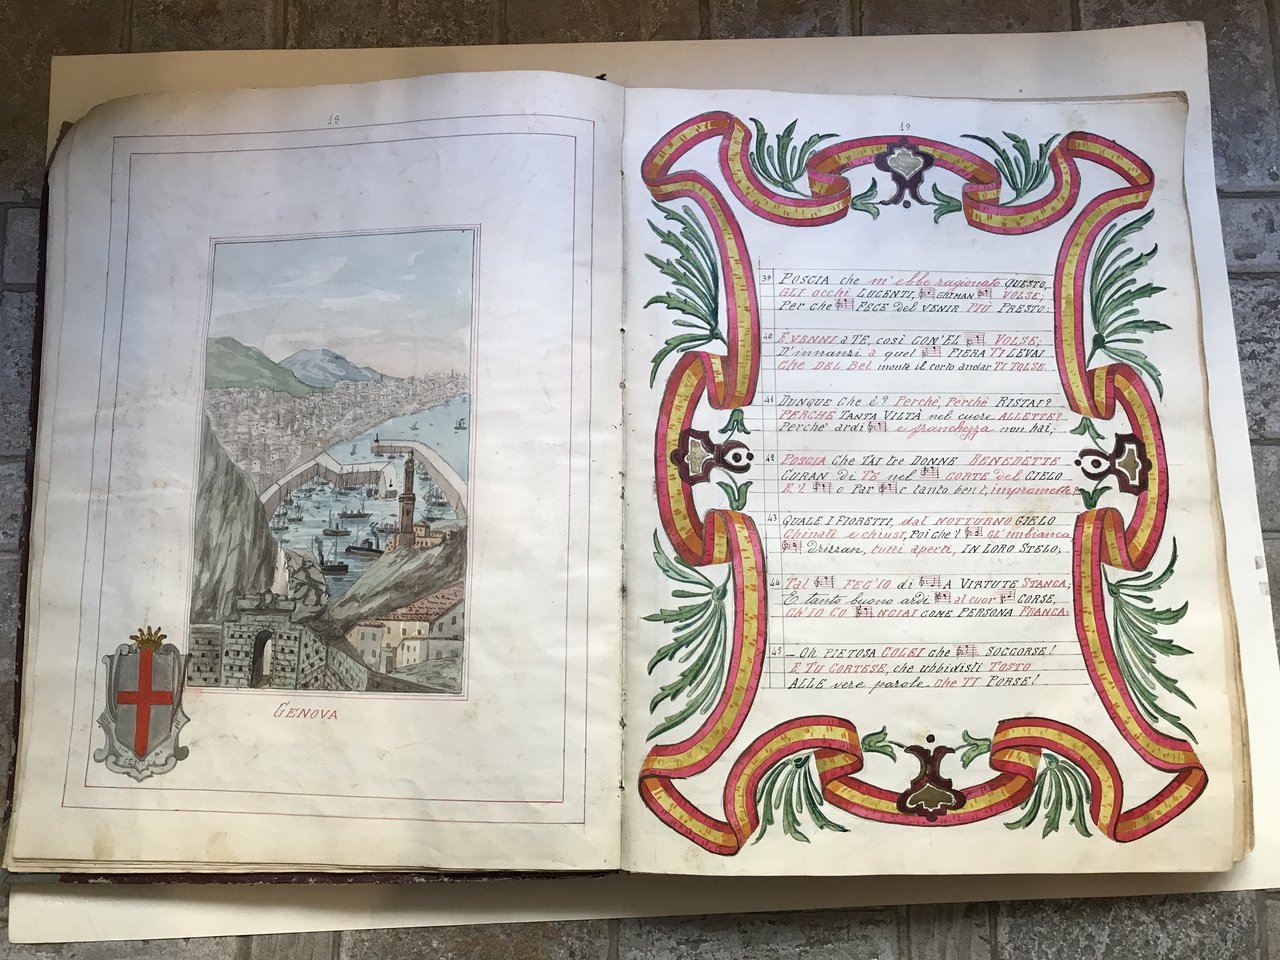 18
GENOVA
19
39 POSCIA che m'ebbe ragionato QUESTO,
GLI occhi LUCENTI, GRIMAN VOLSE;
Per che FECE del VENIR PIÙ PRESTO:
40 E VENNI a TE, così CON'EL VOLSE;
D'innanzi a quel FIERA TI LEVAI
Che DEL Bel monte il corto andar TI TOLSE.
41 DUNQUE Che è? Perchè, Perchè RISTAI?
PERCHÈ TANTA VILTÀ nel cuore ALLETTE?
Perchè ardi e franchezza non hai;
42 POSCIA Che TAI tre DONNE BENEDETTE
CURAN di TE nel CORTE del CIELO
E'l o Par c tanto ben t, impromette?
43 QUALE I FIORETTI, dal NOTTURNO GIELO
Chinati e chiusi, Poi che'l GL'imbianca
Drizzan, tutti aperti, IN LORO STELO;
44 Tal FEC'IO di A VIRTUTE STANCA;
E tanto buono ardi al cuor CORSE,
Ch'IO CO NCIAI COME PERSONA FRANCA:
45 – Oh PIETOSA COLEI che SOCCORSE!
E TU CORTESE, che ubbidisti TOSTO
ALLE vere parole che TI PORSE!